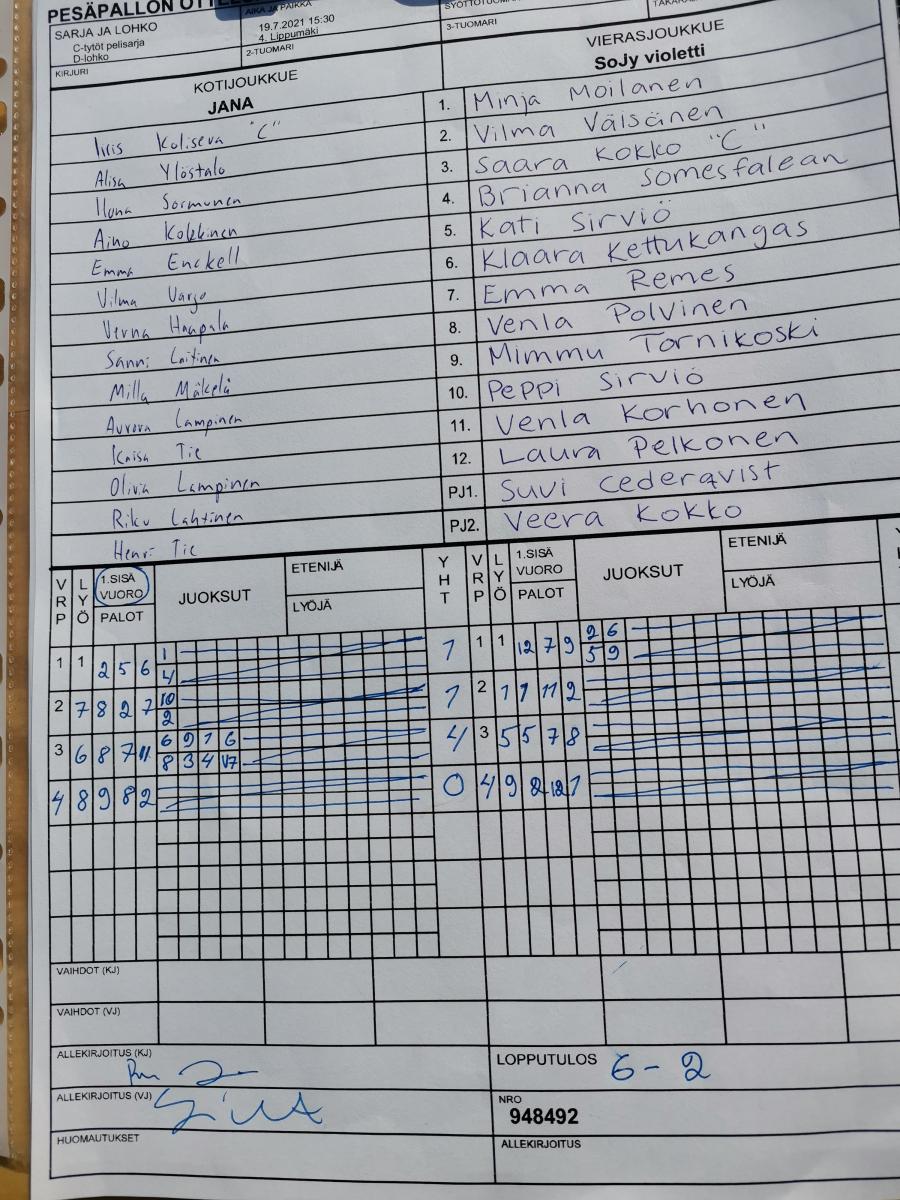 PESÄPALLON
AIKA JA PAIKKA
SARJA JA LOHKO
19.7.2021 15:30
3-TUOMARI
C-tytöt pelisarja
4. Lippumäki
D-lohko
2-TUOMARI
KIRJURI
KOTIJOUKKUE
VIERASJOUKKUE
JANA
SoJy violetti
Iiris Koliseva "C" 1. Minja Moilanen
Alisa Ylöstalo 2. Vilma Väisänen
Ilona Sormunen 3. Saara Kokko "C"
Aino Kokkinen 4. Brianna Somesfalean
Emma Enckell 5. Kati Sirviö
Vilma Vargo 6. Klaara Kettukangas
Verna Haapala 7. Emma Remes
Sanni Laitinen 8. Venla Polvinen
Milla Mäkelä 9. Mimmu Tornikoski
Aurora Lampinen 10. Peppi Sirviö
Kaisa Tie 11. Venla Korhonen
Olivia Lampinen 12. Laura Pelkonen
Riku Lahtinen PJ1. Suvi Cederqvist
Henri Tie PJ2. Veera Kokko
VRP LYÖ 1.SISÄ VUORO PALOT JUOKSUT ETENIJÄ LYÖJÄ YHT VRP LYÖ 1.SISÄ VUORO PALOT JUOKSUT ETENIJÄ LYÖJÄ
1 1 2 5 6 1 1 1 1 12 7 9 2 6
4 5 9
2 7 8 2 7 10 1 2 1 1 11 2
2
3 6 8 7 11 6 9 1 6 4 3 5 5 7 8
8 3 4 V7
4 8 9 8 2 0 4 9 2 12 1
VAIHDOT (KJ)
VAIHDOT (VJ)
ALLEKIRJOITUS (KJ)
LOPPUTULOS 6 - 2
ALLEKIRJOITUS (VJ)
NRO
948492
HUOMAUTUKSET
ALLEKIRJOITUS